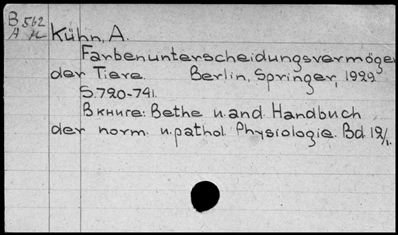 B 562
A K
Kühn, A.
Farbenunterscheidungsvermöge
der Tiere. Berlin, Springer, 1929
S. 720-741.
В книге: Bethe u. and. Handbuch
der norm. u. pathol. Physiologie. Bd 12/1.